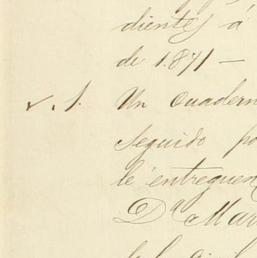 dientes á
de 1.871 —
✓. 1. Un Cuadern
seguido po
le entreguen
Dª Mar